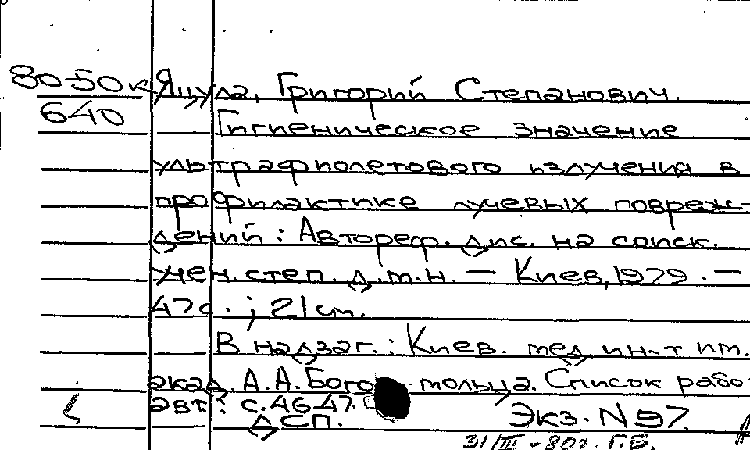 80-50к Яцула, Григорий Степанович.
640 Гигиеническое значение
ультрафиолетового излучения в
профилактике лучевых повреж-
дений: Автореф. дис. на соиск.
учен. степ. д.м.н. — Киев, 1979. —
47с.; 21см.
В надзаг.: Киев. мед ин-т им.
акад. А.А. Богомольца. Список рабо
авт: с.46-47.
ДСП. Экз. N 97.
31/III - 80г. Г.Б.